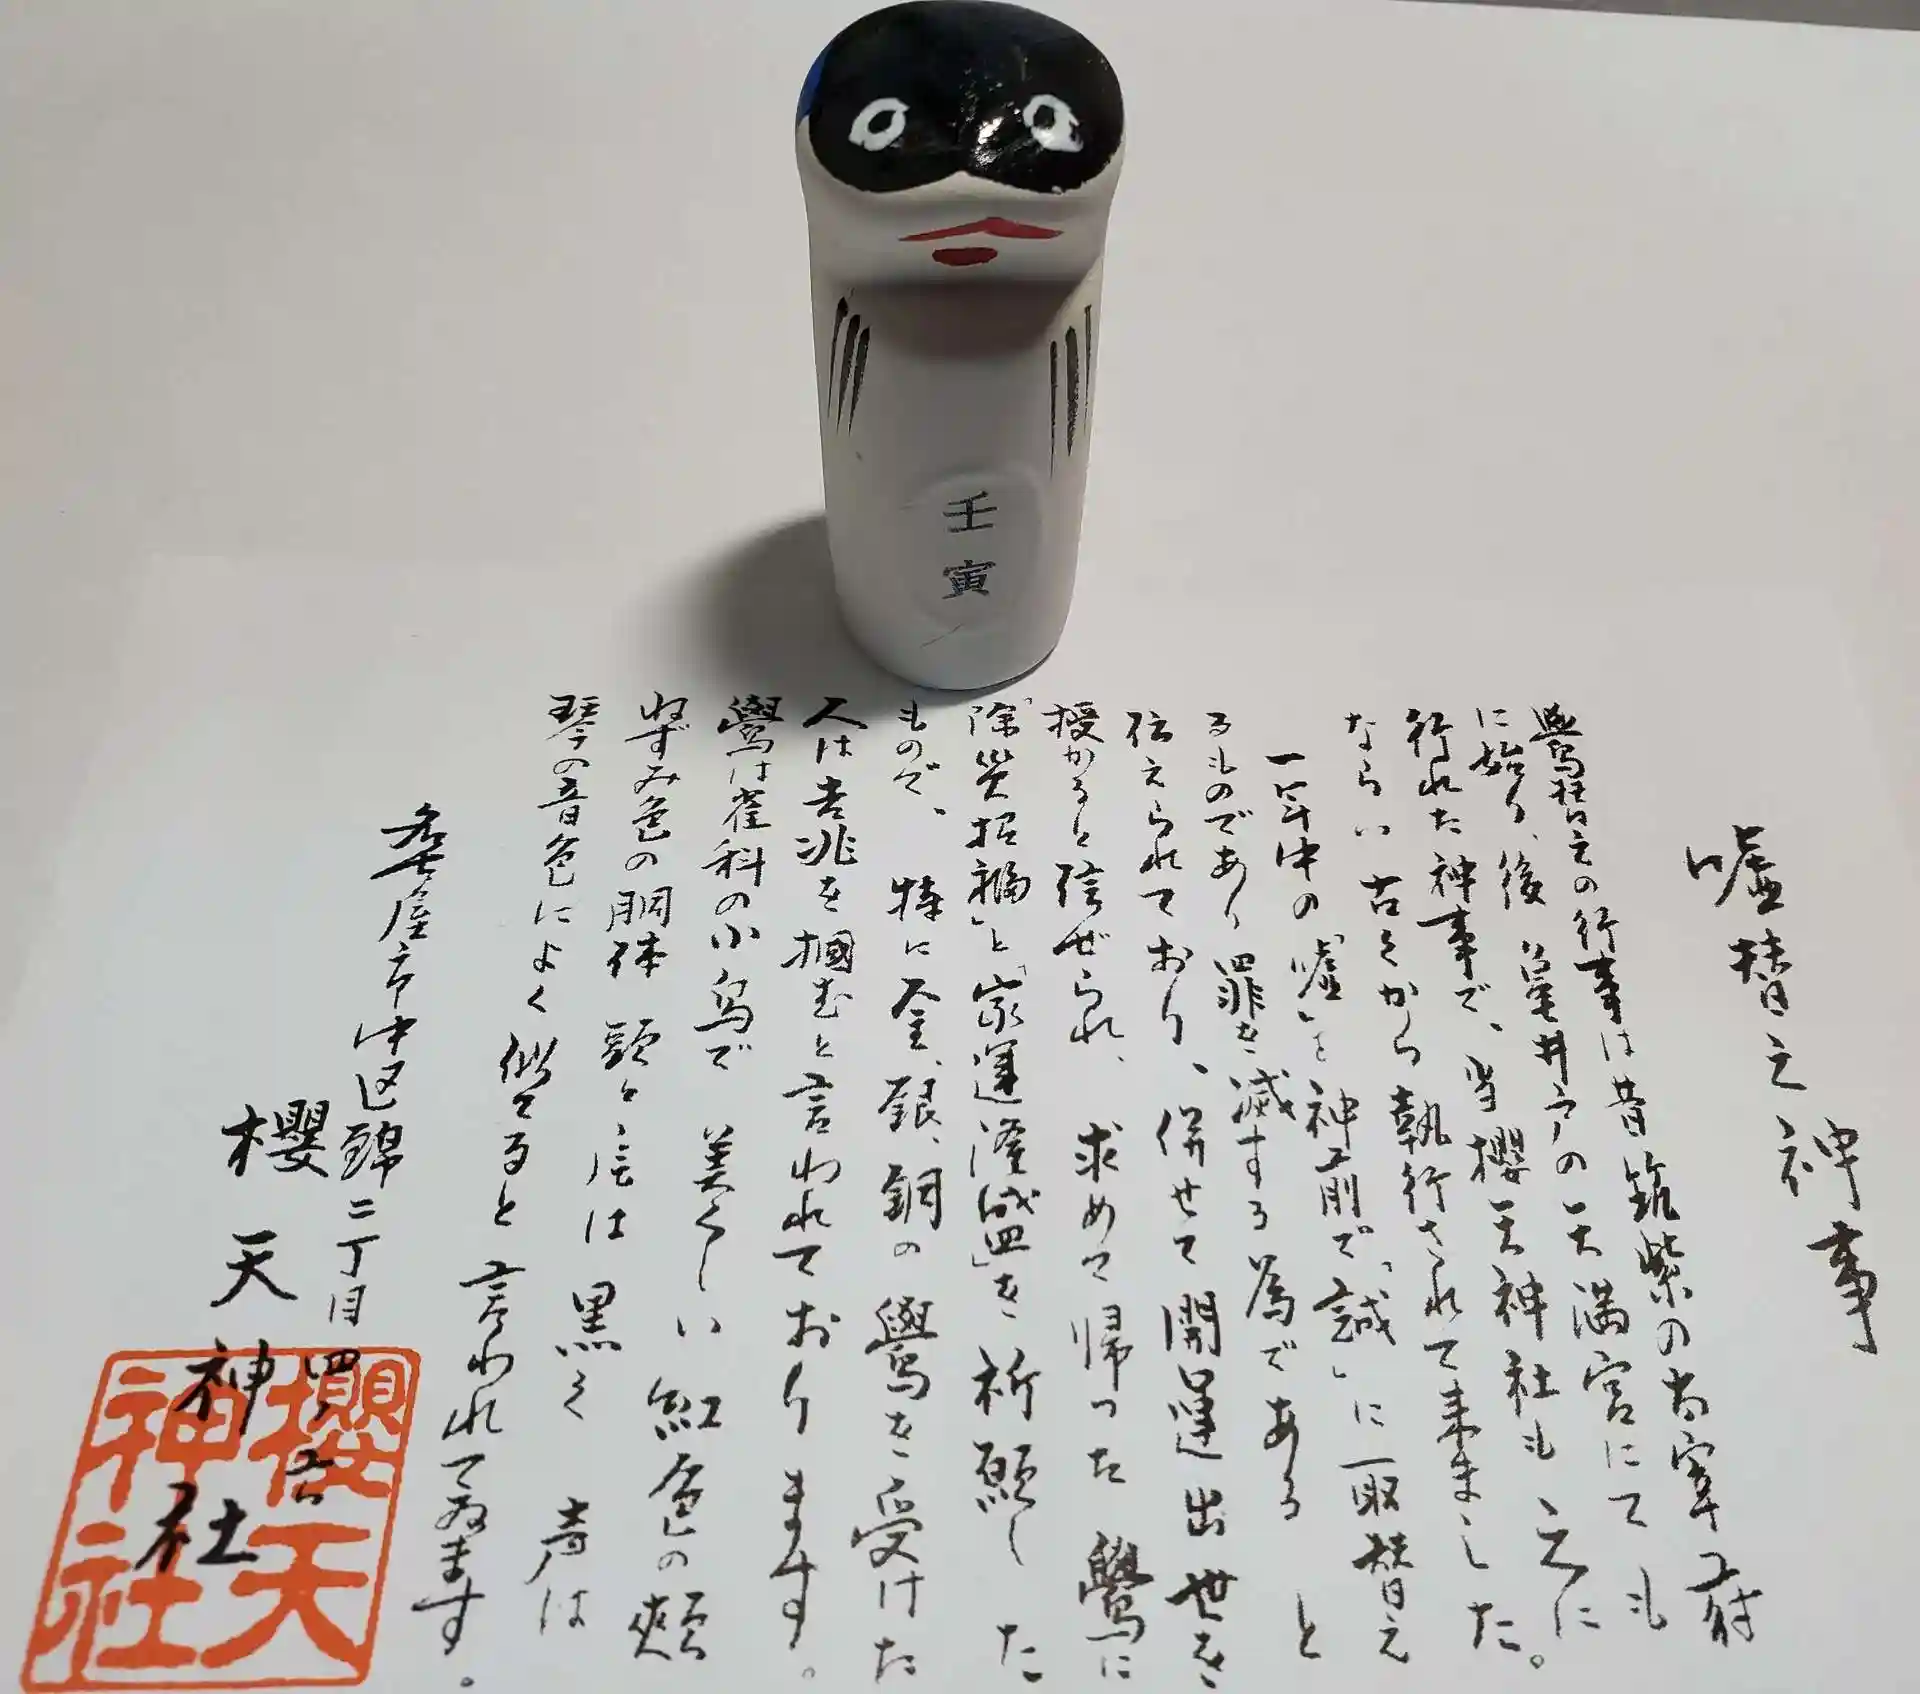 壬寅
嘘替之神事
鷽替之の行事は昔筑紫の太宰府
に始り、後亀井戸の天満宮にても
行れた神事で、当櫻天神社も之に
ならい古くから執行されて来ました。
一年中の「嘘」を神前で「誠」に取替え
るものであり罪を滅する為であると
伝えられており、併せて開運出世を
授かると信ぜられ、求めて帰った鷽に
「除災招福」と「家運隆盛」を祈願した
もので、特に金、銀、銅の鷽を受けた
人は吉兆を掴むと言われております。
鷽は雀科の小鳥で美くしい紅色の頬
ねずみ色の胴体頭と尾は黒く声は
琴の音色によく似てると言われてゐます。
名古屋市中区錦二丁目四ノ六
櫻天神社
櫻天神社